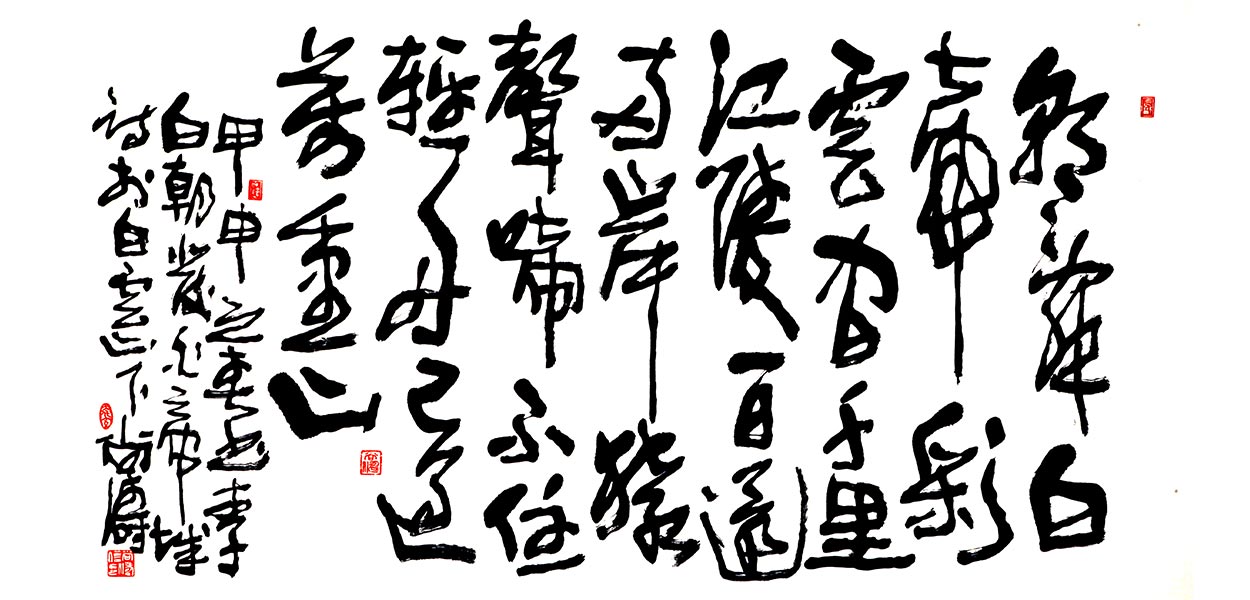 朝辭白
帝彩
雲間千里
江陵一日還
兩岸猿
聲啼不住
輕舟已過
萬重山
甲申之春書李
白朝發白帝城
詩於白雲山下尚濤